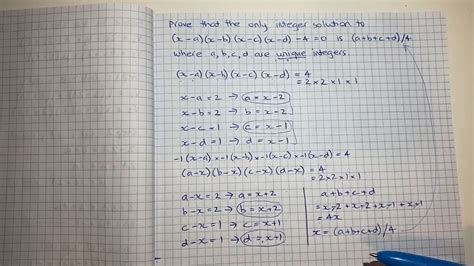 Prove that the only integer solution to
(x-a)(x-b)(x-c)(x-d) -4 =0 is (a+b+c+d)/4
where a,b,c,d are unique integers
(x-a)(x-b)(x-c)(x-d) = 4
= 2×2×1×1
x-a = 2 → a = x-2
x-b = 2 → b = x-2
x-c = 1 → c = x-1
x-d = 1 → d = x-1
-1(x-a)×-1(x-b)×-1(x-c)×-1(x-d) = 4
(a-x)(b-x)(c-x)(d-x) = 4
= 2×2×1×1
a-x = 2 → a = x+2
b-x = 2 → b = x+2
c-x = 1 → c = x+1
d-x = 1 → d = x+1
a+b+c+d
= x-2 + x+2 + x-1 + x+1
= 4x
x = (a+b+c+d)/4